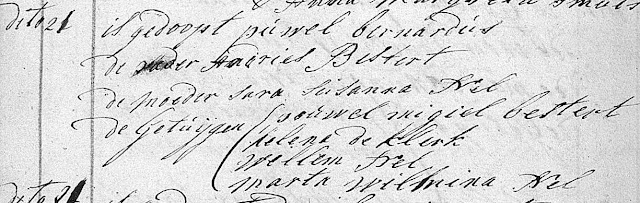 & Anna Margreta Smuts
dito 21 is gedoopt püwel bernardüs
de vader Andries Bestert
de moeder sara süsanna Nel
de Getüijgen poüwel migiel bestert
helena de Klerk
wellem Nel
marta wilmina Nel
dito 21 is